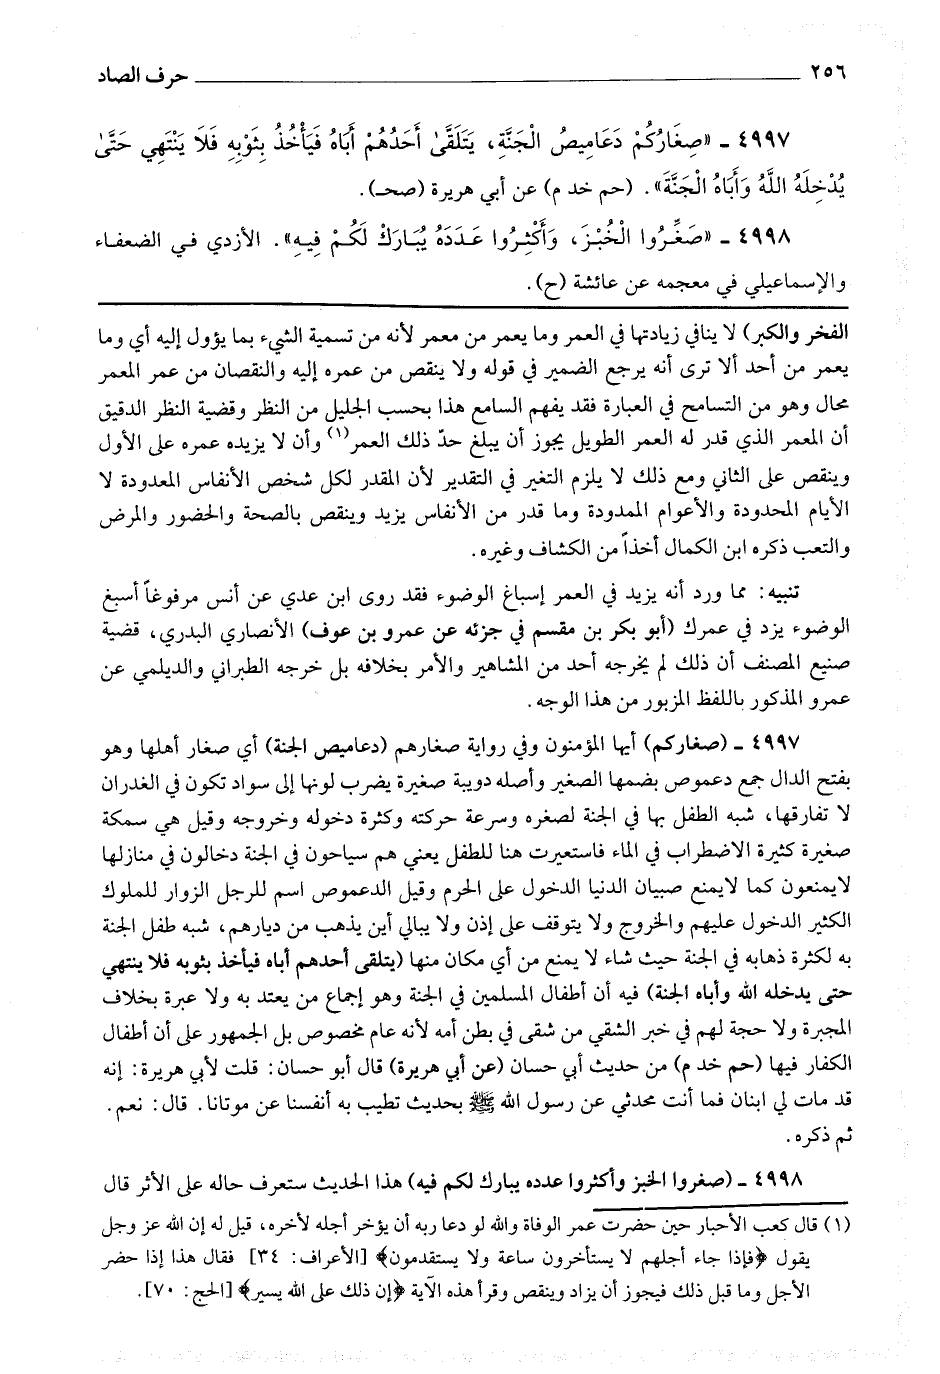 ٢٥٦ حرف الصاد
٤٩٩٧ ـ «صِغَارُكُمْ دَعَامِيصُ الْجَنَّةِ، يَتَلَقَّىٰ أَحَدُهُمْ أَبَاهُ فَيَأْخُذُ بِثَوْبِهِ فَلَا يَنْتَهِي حَتَّىٰ
يُدْخِلَهُ اللَّهُ وَأَبَاهُ الْجَنَّةَ». (حم خد م) عن أبي هريرة (صحـ).
٤٩٩٨ ـ «صَغِّرُوا الْخُبْزَ، وَأَكْثِرُوا عَدَدَهُ يُبَارَكْ لَكُمْ فِيهِ». الأزدي في الضعفاء
والإسماعيلي في معجمه عن عائشة (ح).
الفخر والكبر) لا ينافي زيادتها في العمر وما يعمر من معمر لأنه من تسمية الشيء بما يؤول إليه أي وما
يعمر من أحد ألا ترى أنه يرجع الضمير في قوله ولا ينقص من عمره إليه والنقصان من عمر المعمر
محال وهو من التسامح في العبارة فقد يفهم السامع هذا بحسب الجليل من النظر وقضية النظر الدقيق
أن المعمر الذي قدر له العمر الطويل يجوز أن يبلغ حدّ ذلك العمر(١) وأن لا يزيده عمره على الأول
وينقص على الثاني ومع ذلك لا يلزم التغير في التقدير لأن المقدر لكل شخص الأنفاس المعدودة لا
الأيام المحدودة والأعوام الممدودة وما قدر من الأنفاس يزيد وينقص بالصحة والحضور والمرض
والتعب ذكره ابن الكمال أخذاً من الكشاف وغيره.
تنبيه: مما ورد أنه يزيد في العمر إسباغ الوضوء فقد روى ابن عدي عن أنس مرفوعاً أسبغ
الوضوء يزد في عمرك (أبو بكر بن مقسم في جزئه عن عمرو بن عوف) الأنصاري البدري، قضية
صنيع المصنف أن ذلك لم يخرجه أحد من المشاهير والأمر بخلافه بل خرجه الطبراني والديلمي عن
عمرو المذكور باللفظ المزبور من هذا الوجه.
٤٩٩٧ ـ (صغاركم) أيها المؤمنون وفي رواية صغارهم (دعاميص الجنة) أي صغار أهلها وهو
بفتح الدال جمع دعموص بضمها الصغير وأصله دويبة صغيرة يضرب لونها إلى سواد تكون في الغدران
لا تفارقها، شبه الطفل بها في الجنة لصغره وسرعة حركته وكثرة دخوله وخروجه وقيل هي سمكة
صغيرة كثيرة الاضطراب في الماء فاستعيرت هنا للطفل يعني هم سياحون في الجنة دخالون في منازلها
لا يمنعون كما لا يمنع صبيان الدنيا الدخول على الحرم وقيل الدعموص اسم للرجل الزوار للملوك
الكثير الدخول عليهم والخروج ولا يتوقف على إذن ولا يبالي أين يذهب من ديارهم، شبه طفل الجنة
به لكثرة ذهابه في الجنة حيث شاء لا يمنع من أي مكان منها (يتلقى أحدهم أباه فيأخذ بثوبه فلا ينتهي
حتى يدخله الله وأباه الجنة) فيه أن أطفال المسلمين في الجنة وهو إجماع من يعتد به ولا عبرة بخلاف
المجبرة ولا حجة لهم في خبر الشقي من شقى في بطن أمه لأنه عام مخصوص بل الجمهور على أن أطفال
الكفار فيها (حم خد م) من حديث أبي حسان (عن أبي هريرة) قال أبو حسان: قلت لأبي هريرة: إنه
قد مات لي ابنان فما أنت محدثي عن رسول الله ﷺ بحديث تطيب به أنفسنا عن موتانا. قال: نعم.
ثم ذكره.
٤٩٩٨ ـ (صغروا الخبز وأكثروا عدده يبارك لكم فيه) هذا الحديث ستعرف حاله على الأثر قال
(١) قال كعب الأحبار حين حضرت عمر الوفاة والله لو دعا ربه أن يؤخر أجله لأخره، قيل له إن الله عز وجل
يقول ﴿فإذا جاء أجلهم لا يستأخرون ساعة ولا يستقدمون﴾ [الأعراف: ٣٤] فقال هذا إذا حضر
الأجل وما قبل ذلك فيجوز أن يزاد وينقص وقرأ هذه الآية ﴿إن ذلك على الله يسير﴾ [الحج: ٧٠].